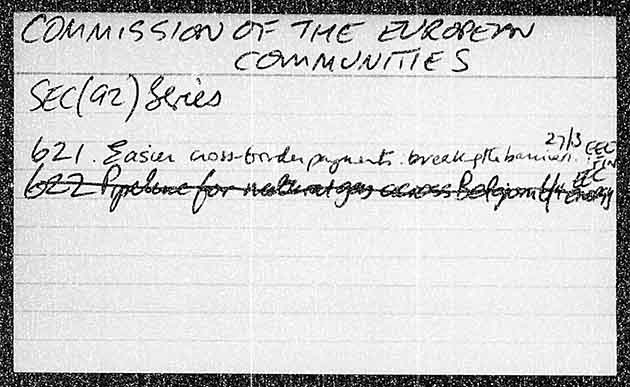 COMMISSION OF THE EUROPEAN
COMMUNITIES
SEC(92) Series
27/3 EEC
621. Easier cross-border payments. breaking the barriers. FIN
EEC
622 Pipeline for natural gas across Belgium 1/4 Energy